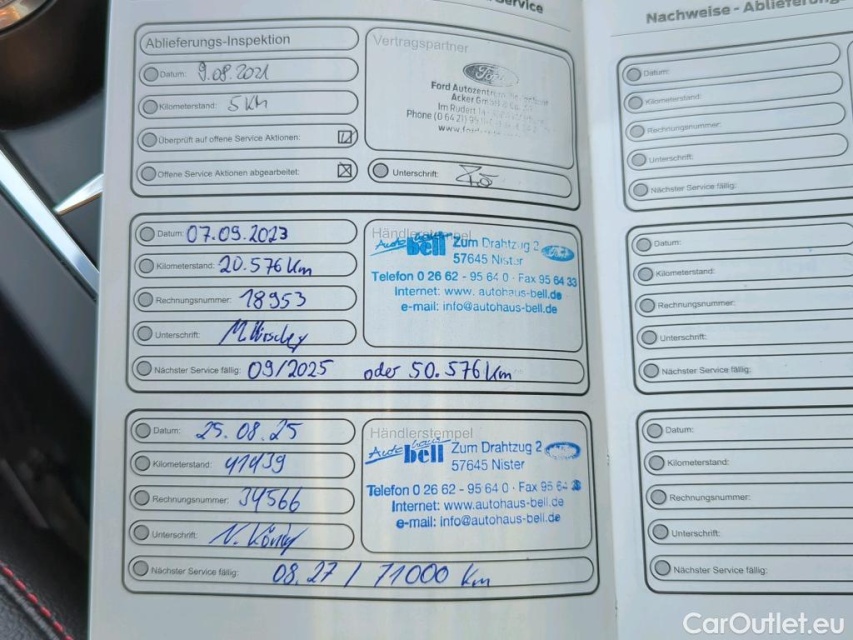 Service
Ablieferungs-Inspektion
Datum: 9.08.2021
Kilometerstand: 5 Km
Überprüft auf offene Service Aktionen:
Offene Service Aktionen abgearbeitet:
Vertragspartner
Ford
Ford Autozentrum
Acker
Im Rudert
Phone (0 64 21)
Unterschrift:
Datum: 07.09.2023
Kilometerstand: 20.576 Km
Rechnungsnummer: 18953
Unterschrift:
Händlerstempel
Autohaus bell Zum Drahtzug 2
57645 Nister
Telefon 0 26 62 - 95 64 0 · Fax 95 64 33
Internet: www.autohaus-bell.de
e-mail: info@autohaus-bell.de
Nächster Service fällig: 09/2025 oder 50.576 Km
Datum: 25.08.25
Kilometerstand: 41439
Rechnungsnummer: 34566
Unterschrift: N. König
Händlerstempel
Autohaus bell Zum Drahtzug 2
57645 Nister
Telefon 0 26 62 - 95 64 0 · Fax 95 64
Internet: www.autohaus-bell.de
e-mail: info@autohaus-bell.de
Nächster Service fällig: 08.27 / 71000 Km
Nachweise - Ablieferung
Datum:
Kilometerstand:
Rechnungsnummer:
Unterschrift:
Nächster Service fällig:
Datum:
Kilometerstand:
Rechnungsnummer:
Unterschrift:
Nächster Service fällig:
Datum:
Kilometerstand:
Rechnungsnummer:
Unterschrift:
Nächster Service fällig:
CarOutlet.eu